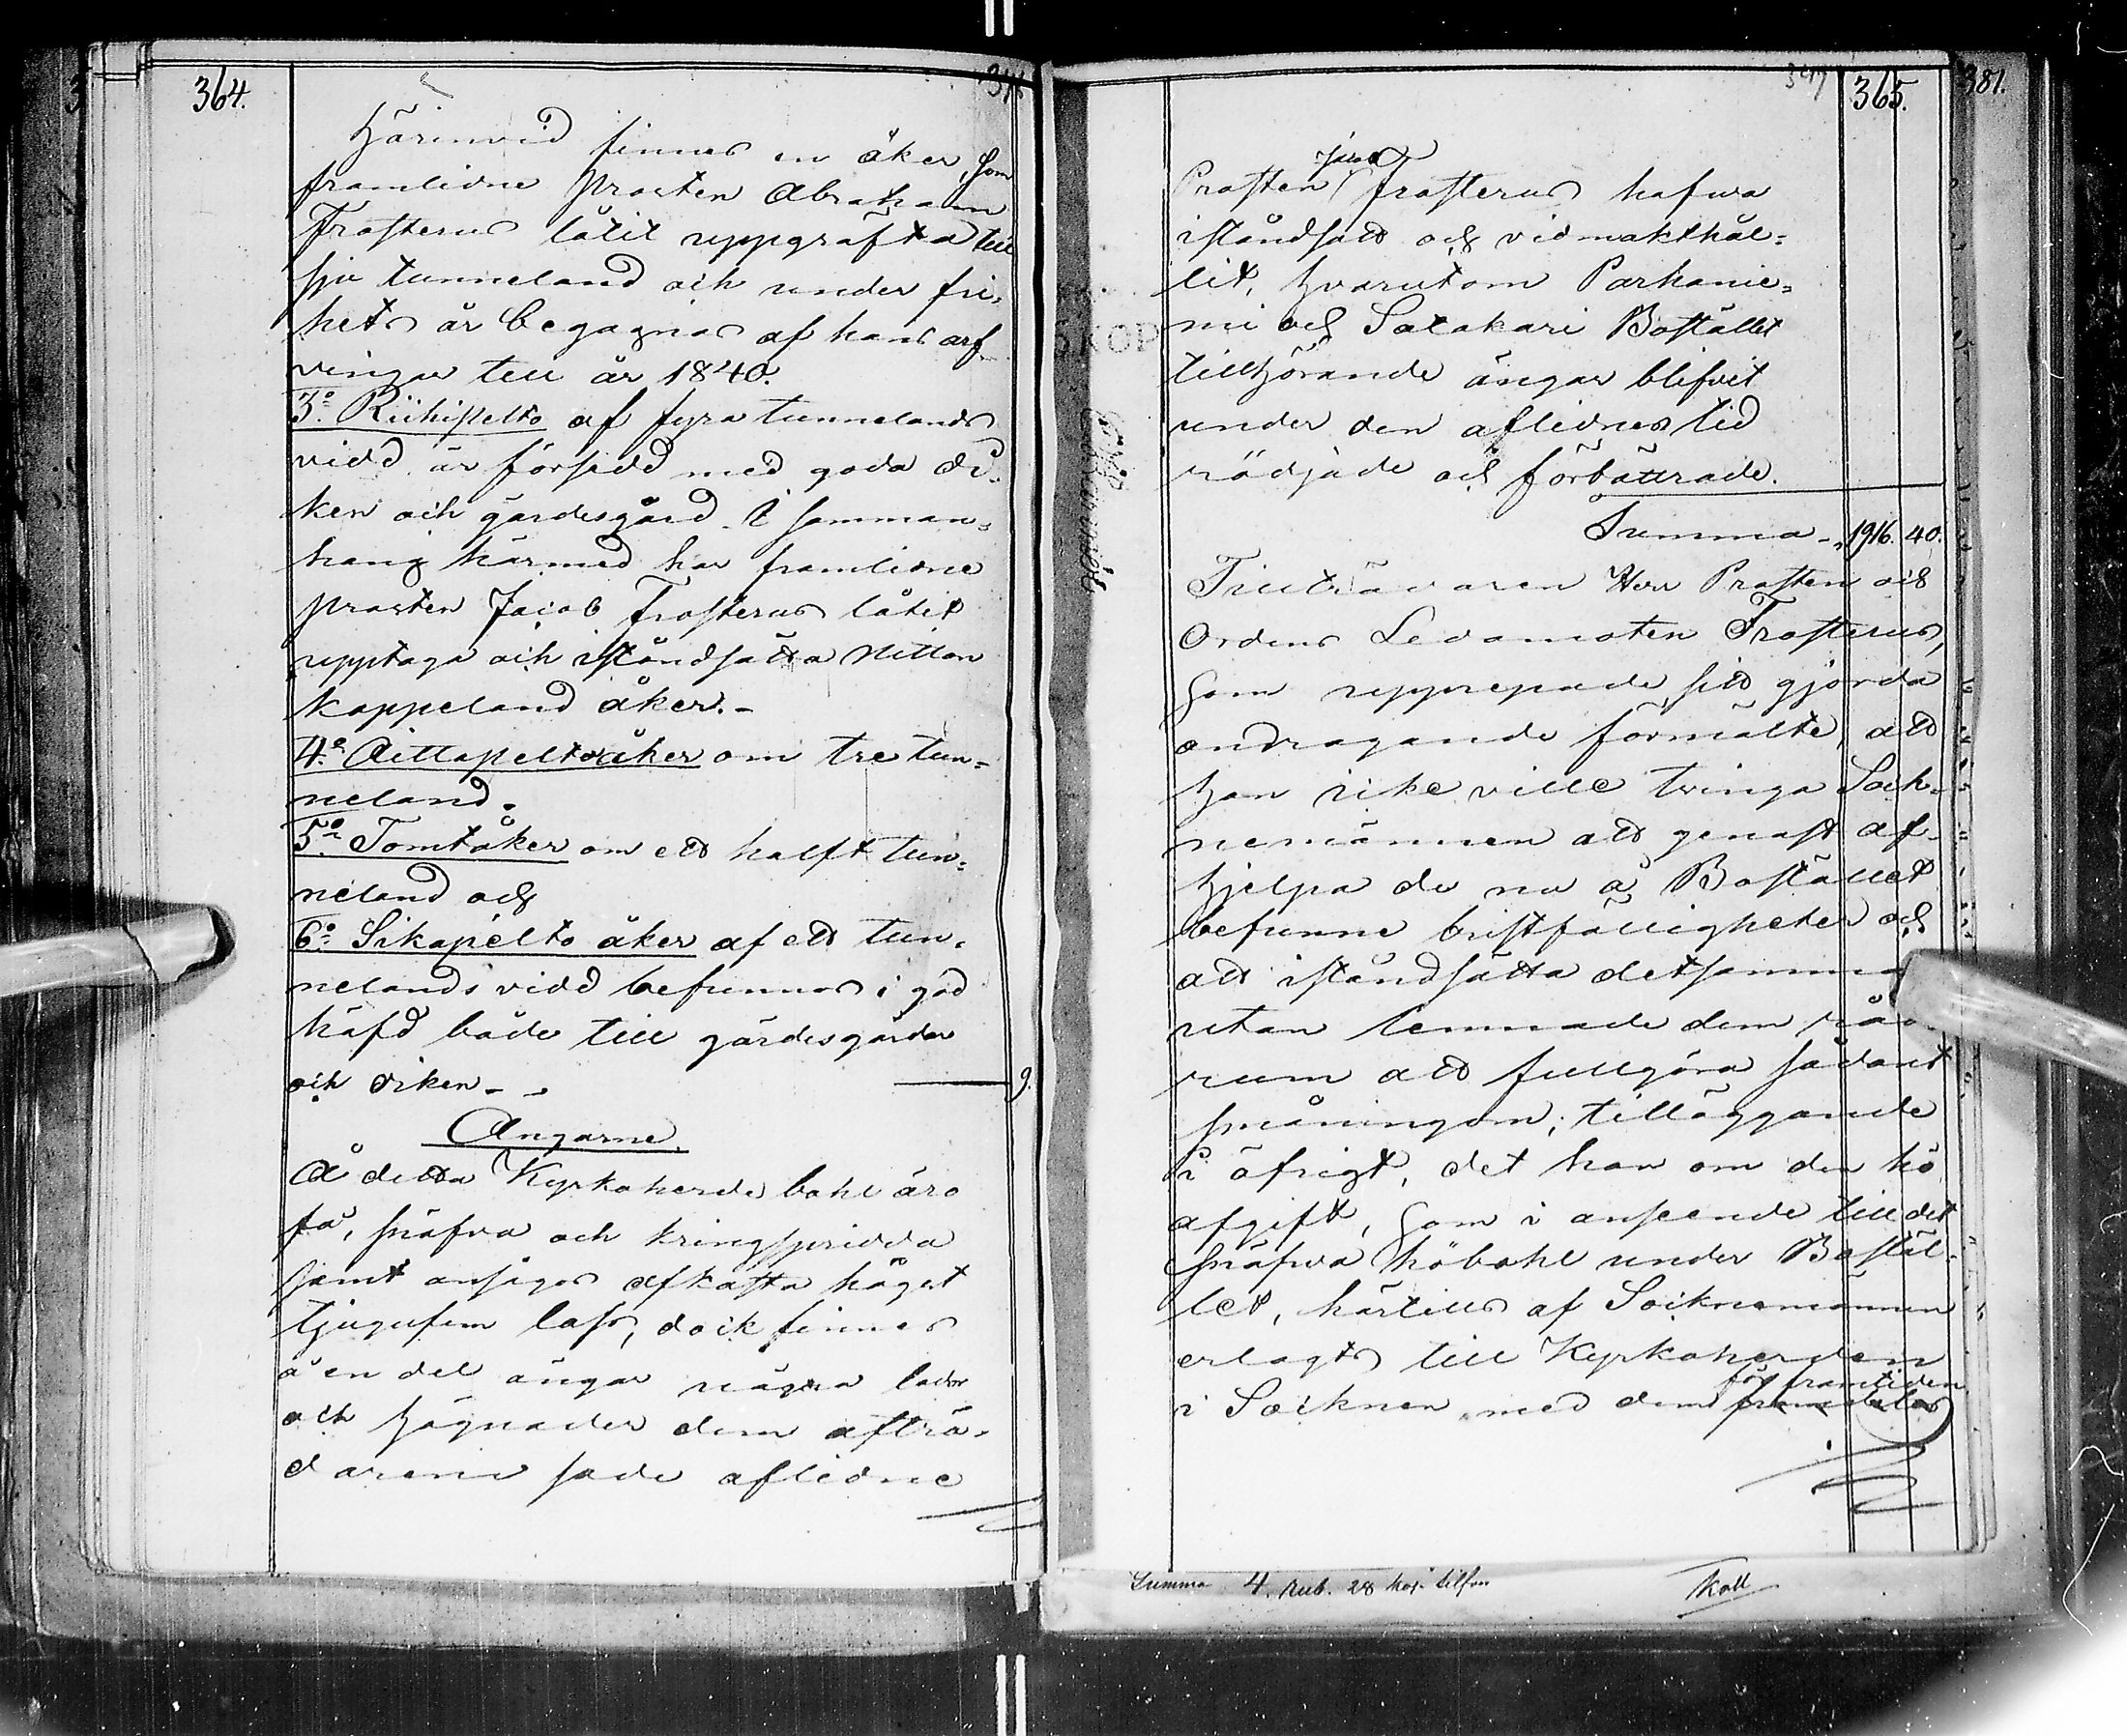 364.
Härinvid finnes en åker, som
framlidne Prosten Abraham
Frosterus låtit uppgräfva till
sju tunneland och under fri-
hets år begagnas af hans arf
vingar till år 1840.
3:o Riihipelto af fyra tunnelands
vidd är försedd med goda di-
ken och gärdesgård. I samman-
hang härmed har framlidne
Prosten Jacob Frosterus låtit
upptaga och iståndsätta Nitton
kappeland åker.-
4:o Aittapelto åker om tre tun-
neland.
5:o Tomtåker om ett halft tun-
neland och
6:o Sikapelto åker af ett tun-
nelands vidd befunnos i god
häfd både till gärdesgårdar
och diken - - 9.
Ängarne.
Å detta Kyrkoherde bohl äro
få, snäfva och kringspridda
samt ansågos afkasta högst
tjugufem lass, dock finnes
å en del ängar några lador
och hägnader dem afträ-
darene sade aflidne
365.
381.
Jacob
Prosten Frosterus hafva
iståndsatt och vidmakthål-
lit, hvarutom Parhanie-
mi och Satakari Bostället
tillhörande ängar blifvit
under den aflidnes tid
rödjade och förbättrade.
Summa - 1916. 40.
Tillträdaren Herr Prosten och
Ordens Ledamoten Frosterus,
som upprepade sitt gjorda
andragande förmälte, att
han icke ville tvinga Sock-
nemännen att genast af-
hjelpa de nu å Bostället
befunne bristfälligheter och
att iståndsätta detsamma
utan lemnade dem råd-
rum att fullgöra sådant
småningom; tilläggande
i öfrigt, det han om den hö
afgift, som i anseende till det
snäfva höbohl under Bostäl-
let, härtills af Socknemännen
erlagts till Kyrkoherden
för framtiden
i Socknen med dem
Summa 4. Rub. 28 kop. silfver